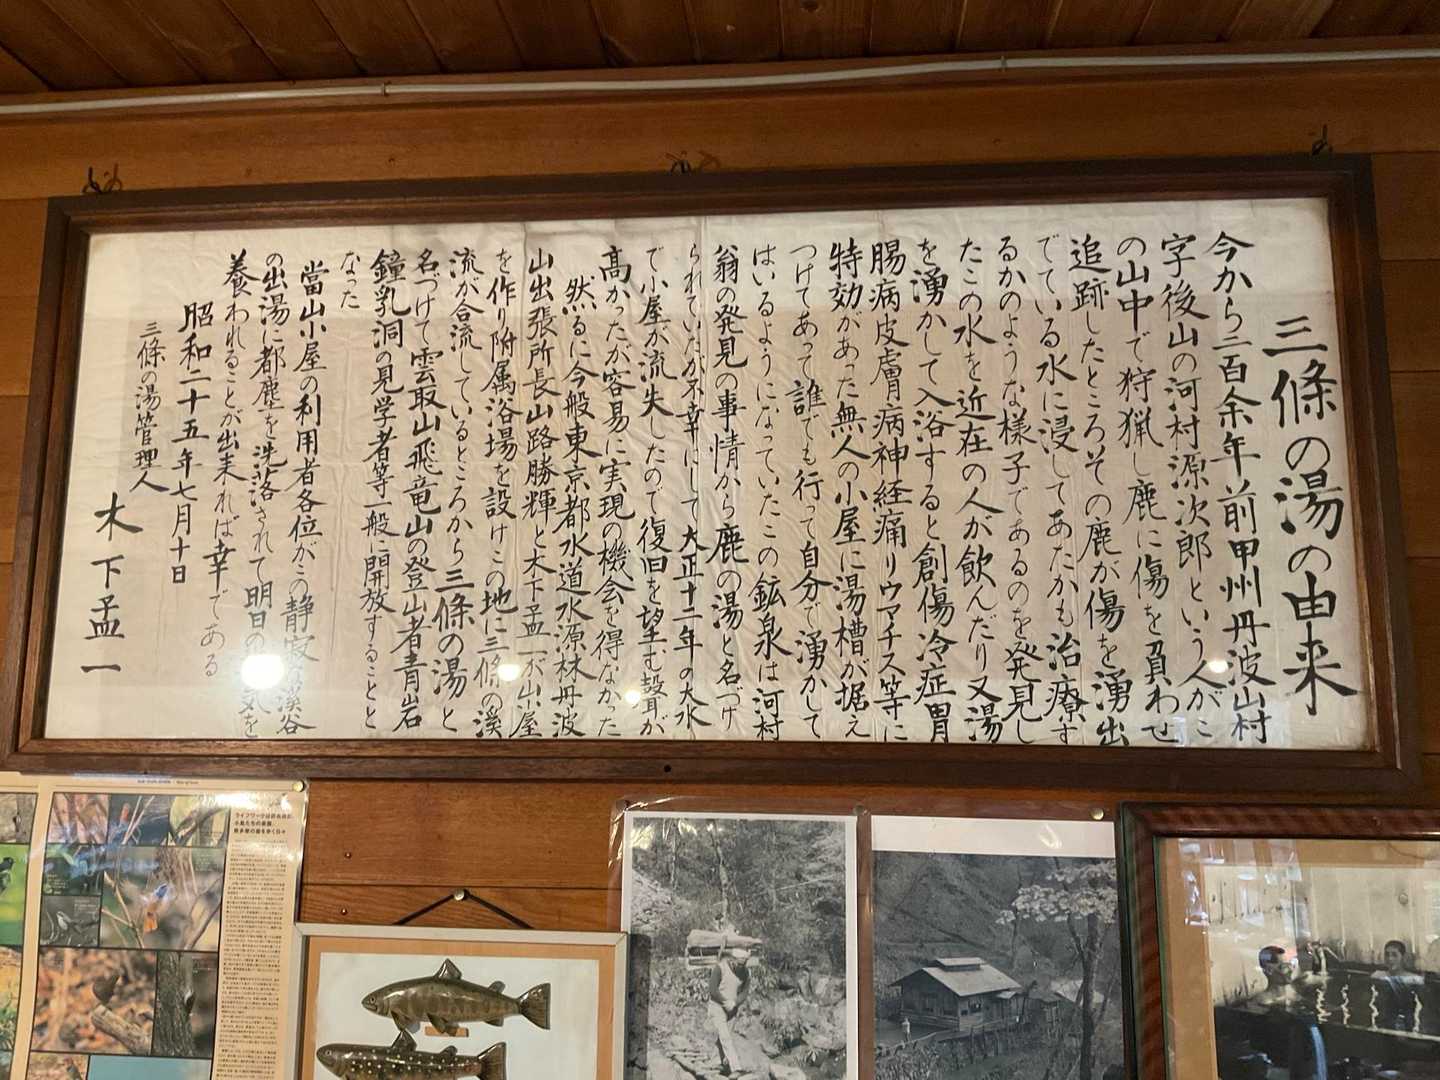 三條の湯の由来
今から二百余年前甲州丹波山村
字後山の河村源次郎という人がこ
の山中で狩猟し鹿に傷を負わせ
追跡したところその鹿が傷を湧出
でている水に浸してあたかも治療す
るかのような様子であるのを発見し
たこの水を近在の人が飲んだり又湯
を湧かして入浴すると創傷冷症胃
腸病皮膚病神経痛リウマチス等に
特効があった無人の小屋に湯槽が据え
つけてあって誰でも行って自分で湧かして
はいるようになっていたこの鉱泉は河村
翁の発見の事情から鹿の湯と名づけ
られていたが不幸にして大正十二年の大水
で小屋が流失したので復旧を望む聲が
高かったが容易に実現の機会を得なかった
然るに今般東京都水道水源林丹波
山出張所長山路勝輝と木下孟一が山小屋
を作り附属浴場を設けこの地に三條の溪
流が合流しているところから三條の湯と
名づけて雲取山飛竜山の登山者青岩
鐘乳洞の見学者等一般に開放することと
なった
當山小屋の利用者各位がこの静寂な溪谷
の出湯に都塵を洗落されて明日の気を
養われることが出来れば幸である
昭和二十五年七月十日
三條の湯管理人
木下孟一
ライフワークは野鳥撮影。